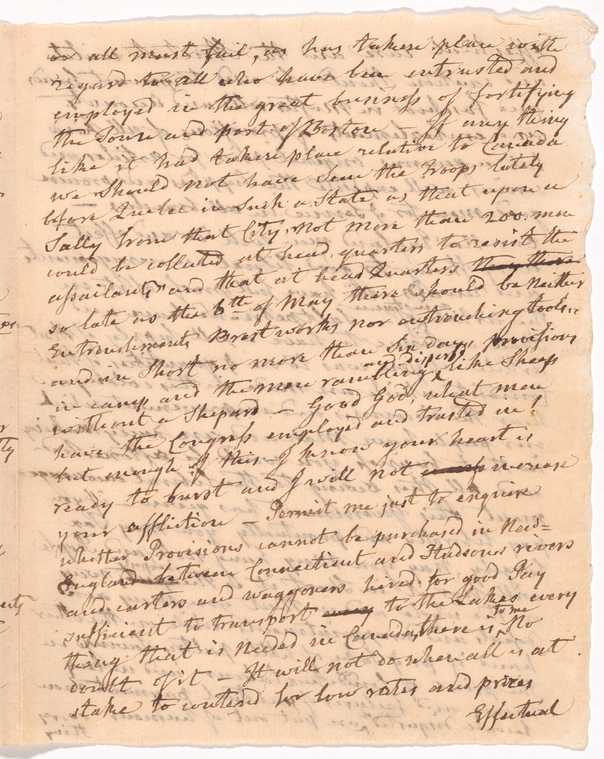 or all must fail, as has taken place with
regard to all who have been entrusted and
employed in the great business of fortifying
the Town and port of Boston If any thing
like it had taken place relative to Canada
we should not have seen the troops lately
before Quebec in such a State as that upon a
Sally from that City, not more than 200. men
could be collected at head quarters to resist the
assailants, and that at head Quarters they there
so late as the 6th of May there should be neither
Entrenchments Brestworks nor entrenching tools
and in short no more than six days provisions
in camp and the men rambling and dispersd like Sheep
without a Shepard — Good God, what men
have the Congress employed and trusted in!
but enough of this — I know your heart is
ready to burst and I will not increase
your affliction — Permit me just to enquire
whether Provisions cannot be purchased in New=
England between Connecticut and Hudsons rivers
and carters and waggoners hired for good Pay
sufficient to transport every to the Lakes every
thing that is needed in Canada, there is to me No
doubt of it — It will not do when all is at
stake to contend for low rates and prizes
Effectual